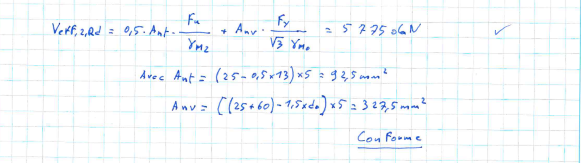 Veff,2,Rd = 0,5. Ant. Fu/γM2 + Anv. Fy/√3 γM0 = 5 775 daN ✓
Avec Ant = (25 - 0,5x13) x5 = 92,5 mm²
Anv = [(25+60) - 1,5xd0] x5 = 327,5 mm²
Conforme